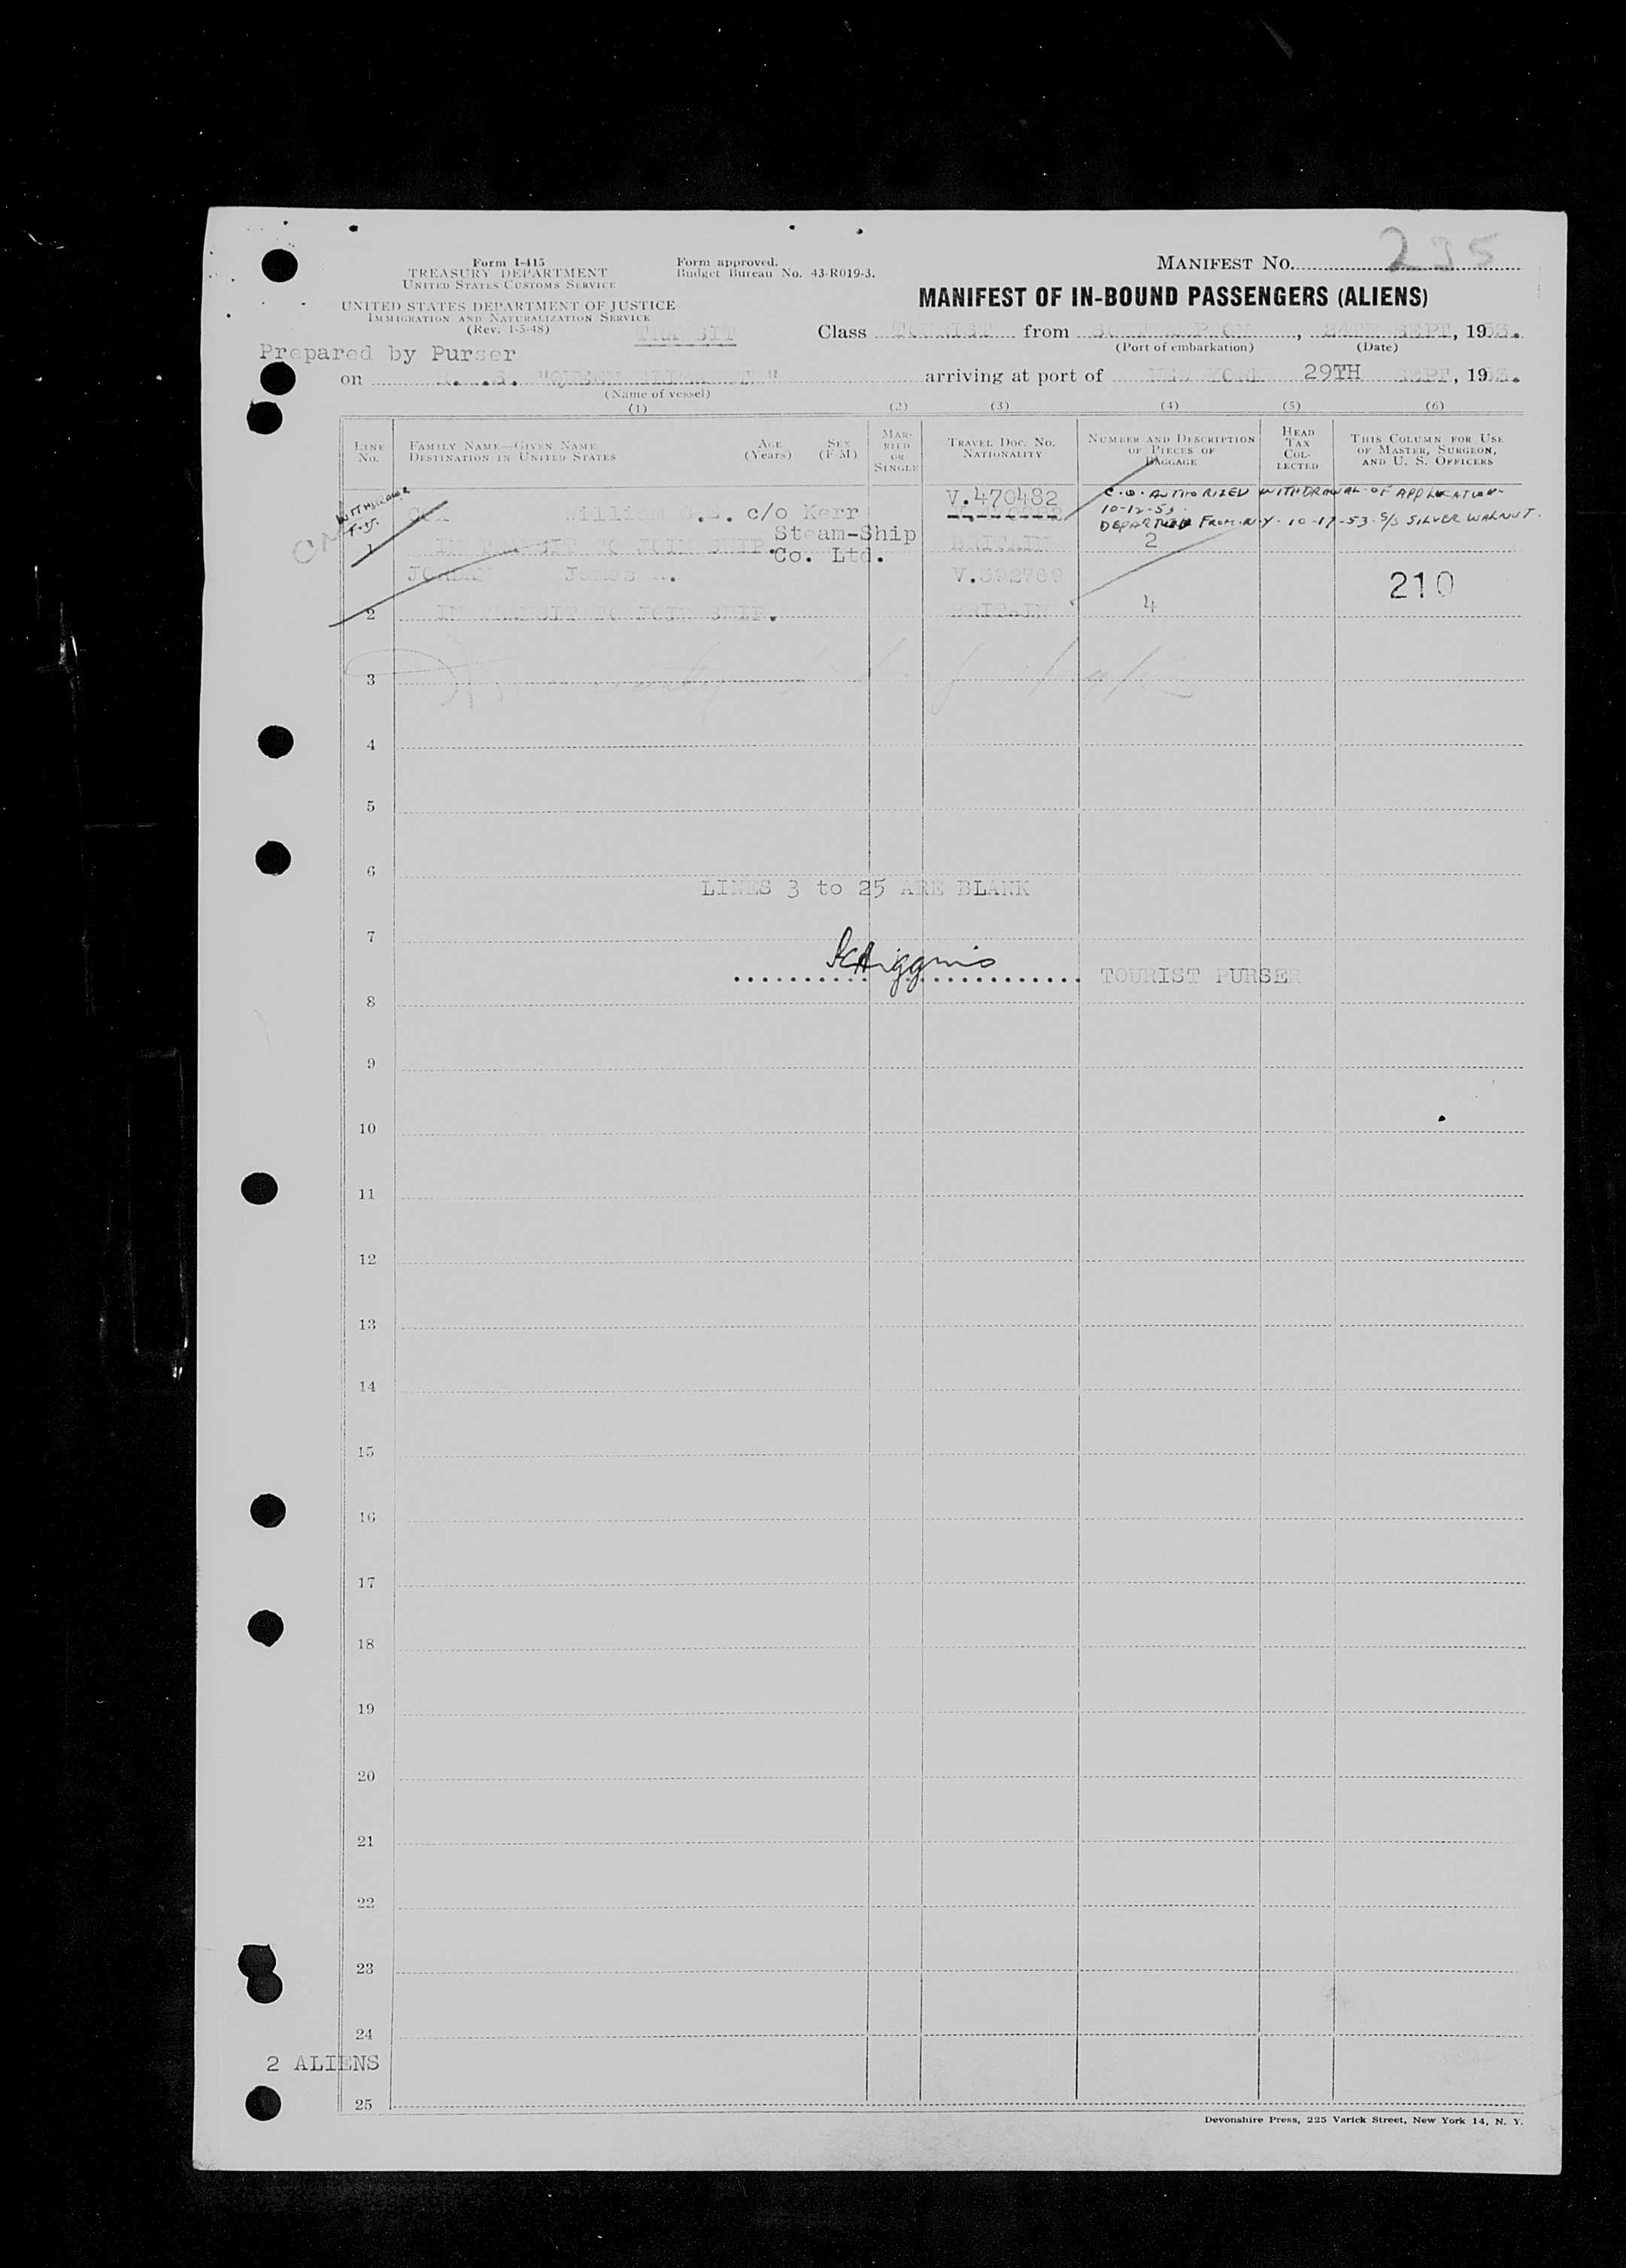 Form I-415
TREASURY DEPARTMENT
UNITED STATES CUSTOMS SERVICE
UNITED STATES DEPARTMENT OF JUSTICE
IMMIGRATION AND NATURALIZATION SERVICE
(Rev. 1-5-48)
Form approved.
Budget Bureau No. 43-R019-3.
MANIFEST NO. 235
MANIFEST OF IN-BOUND PASSENGERS (ALIENS)
TRANSIT
Class TOURIST from SOUTHAMPTON, 24TH SEPT, 1953.
(Port of embarkation) (Date)
Prepared by Purser
on R.M.S. "QUEEN ELIZABETH" arriving at port of NEW YORK 29TH SEPT, 1953.
(Name of vessel)
(1) (2) (3) (4) (5) (6)
LINE NO. FAMILY NAME—GIVEN NAME DESTINATION IN UNITED STATES AGE (Years) SEX (F-M) MARRIED OR SINGLE TRAVEL DOC. NO. NATIONALITY NUMBER AND DESCRIPTION OF PIECES OF BAGGAGE HEAD TAX COLLECTED THIS COLUMN FOR USE OF MASTER, SURGEON, AND U. S. OFFICERS
V.470482
William G.E. c/o Kerr
Steam-Ship
Co. Ltd.
C.O. AUTHORIZED WITHDRAWAL OF APPLICATION
10-12-53.
DEPARTED FROM N.Y. 10-17-53 S/S SILVER WALNUT.
1 IN TRANSIT TO JOIN SHIP. BRITAIN 2
JORDAN James R. V.392789 210
2 IN TRANSIT TO JOIN SHIP. BRITAIN 4
3
4
5
6
LINES 3 to 25 ARE BLANK
7
Higgins TOURIST PURSER
8
9
10
11
12
13
14
15
16
17
18
19
20
21
22
23
24
2 ALIENS
25
Devonshire Press, 225 Varick Street, New York 14, N. Y.